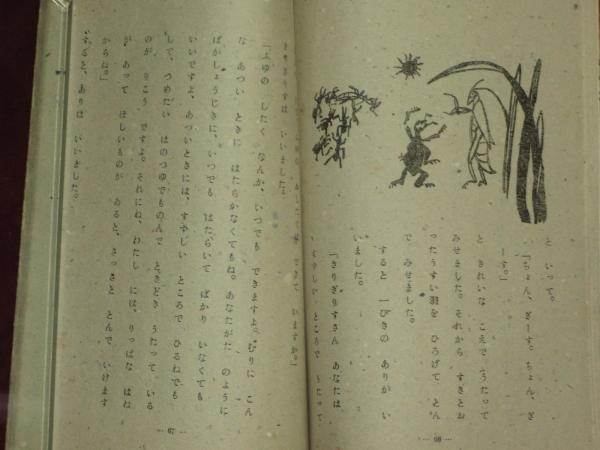 と いって、
「ちょん、ぎーす。ちょん、ぎ
ーす。」
と きれいな こえで うたって
みせました。それから すきとお
ったうすい羽を ひろげて とん
で みせました。
すると 一ぴきの ありが い
いました。
「きりぎりすさん あなたは
すずしい ところで うたって
― 66 ―
できて いますか。」
きりぎりすは いいました。
「ふゆの したく なんか、いつでも できますよ。むりに こん
な あつい ときに はたらかなくてもね。あなたがた のように
ばかしょうじきに、いつでも はたらいて ばかり いなくても
いいですよ。あついときには、すずしい ところで ひるねでも
して、つめたい はのつゆでものんで ときどき うたって いる
のが りこう ですよ。それにね、わたし には、りっぱな はね
が あって ほしいものが あると、さっさと とんで いけます
からね。」
すると、ありは いいました。
― 67 ―